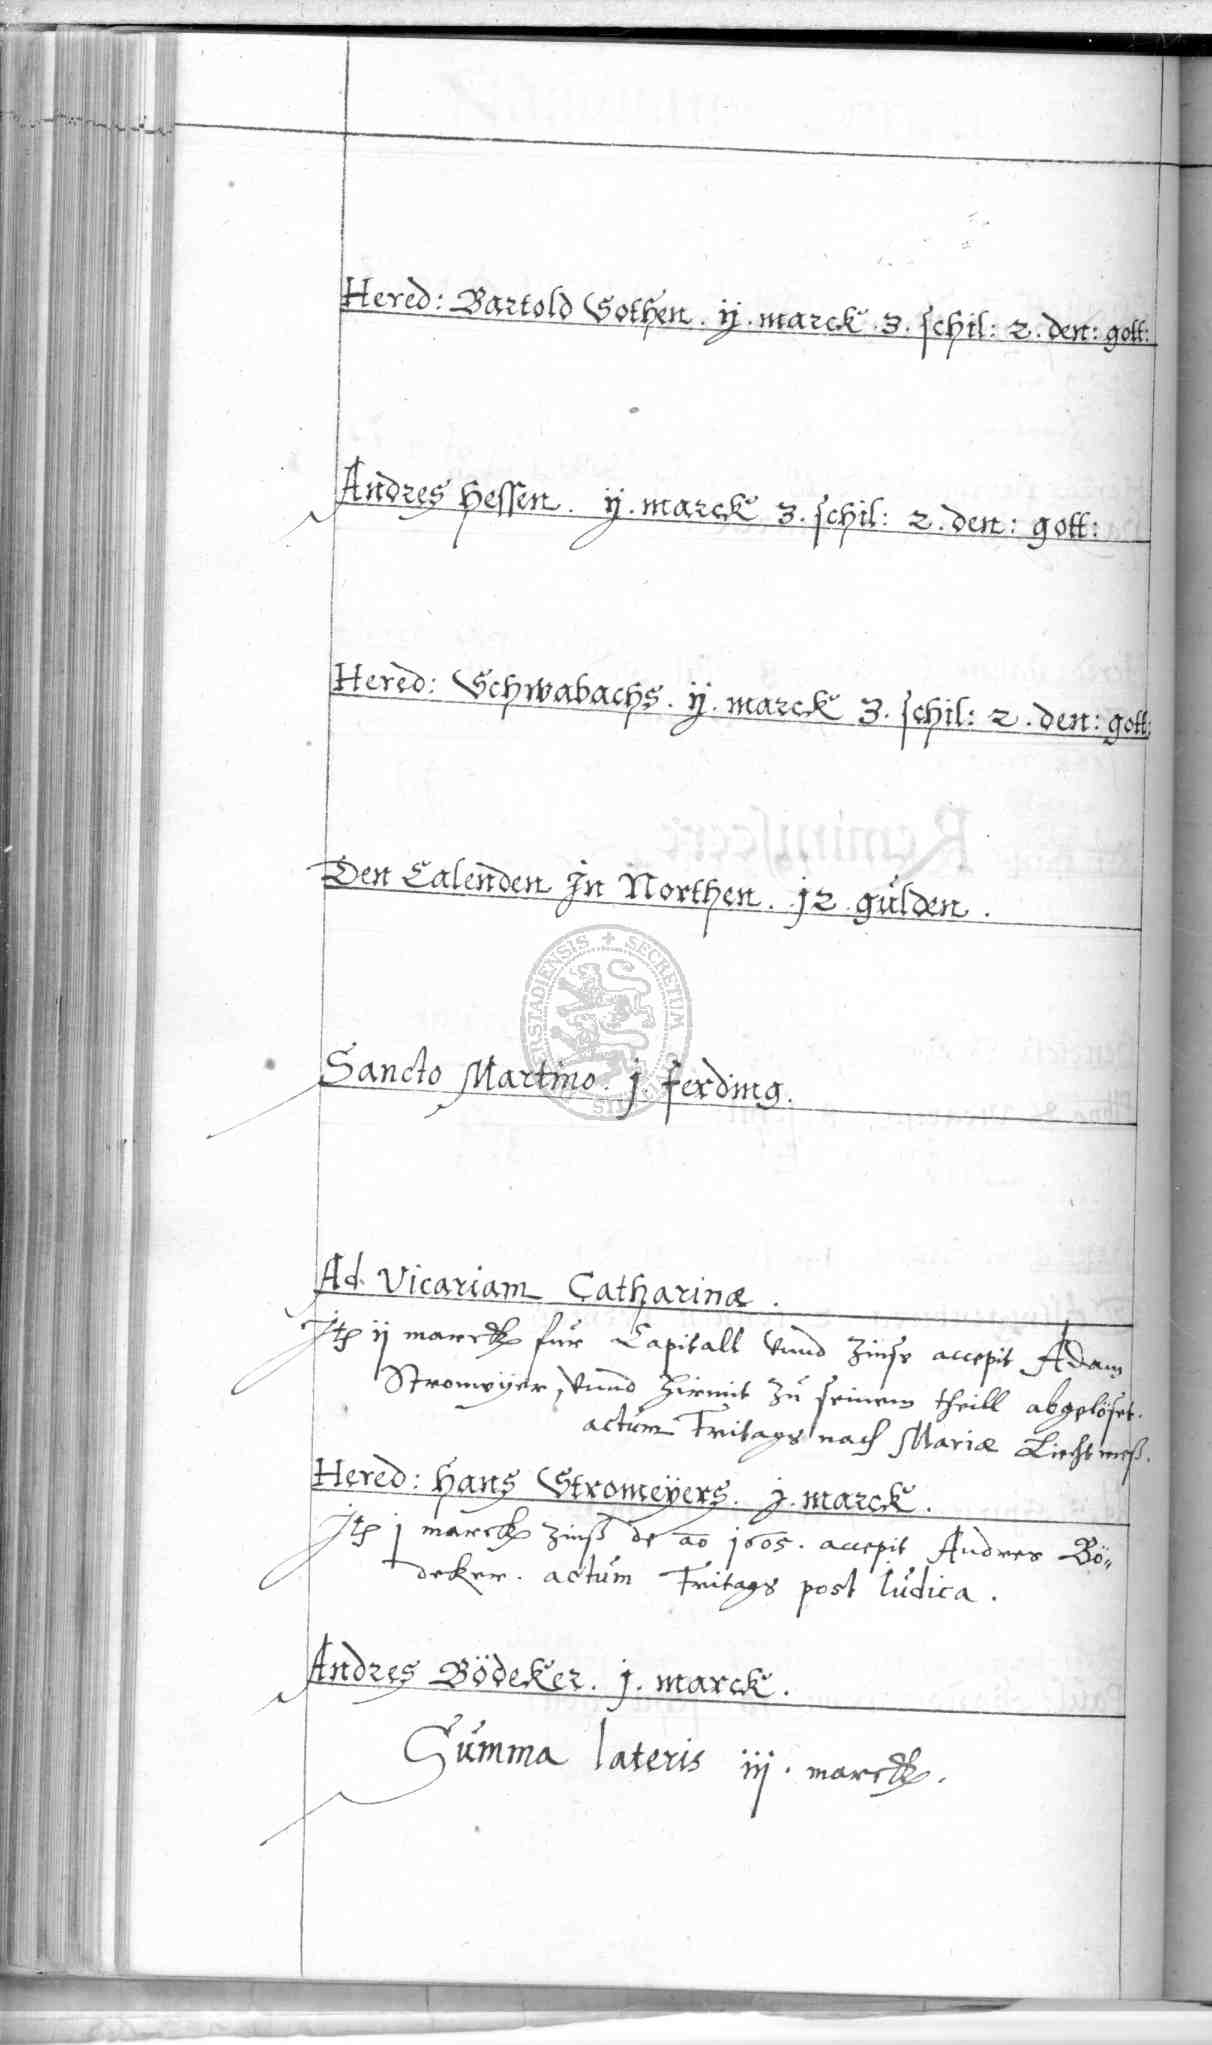 Hered: Bartold Gothen. ij. marck. 3. schil: 2. den: gott:
Andres Hessen. ij. marck 3. schil: 2. den: gott:
Hered: Schwabachs. ij. marck 3. schil: 2. den: gott:
Den Calenden In Northen. j2 gulden.
Sancto Martino. j. ferding.
Ad Vicariam Catharinæ.
ij marck für Capitall vnnd Zinse accepit Adam
Stromeijer, vnnd hirmit zu seinem theill abgelöset.
actum Fritags nach Mariæ Liechtmeß.
Hered: Hans Stromeÿers. j. marck.
j marck zinß de ao 1605. accepit Andres Bö„
deker. actum Fritags post Iudica.
Andres Bödeker. j. marck.
Summa lateris iij. marck.
SECRETUM